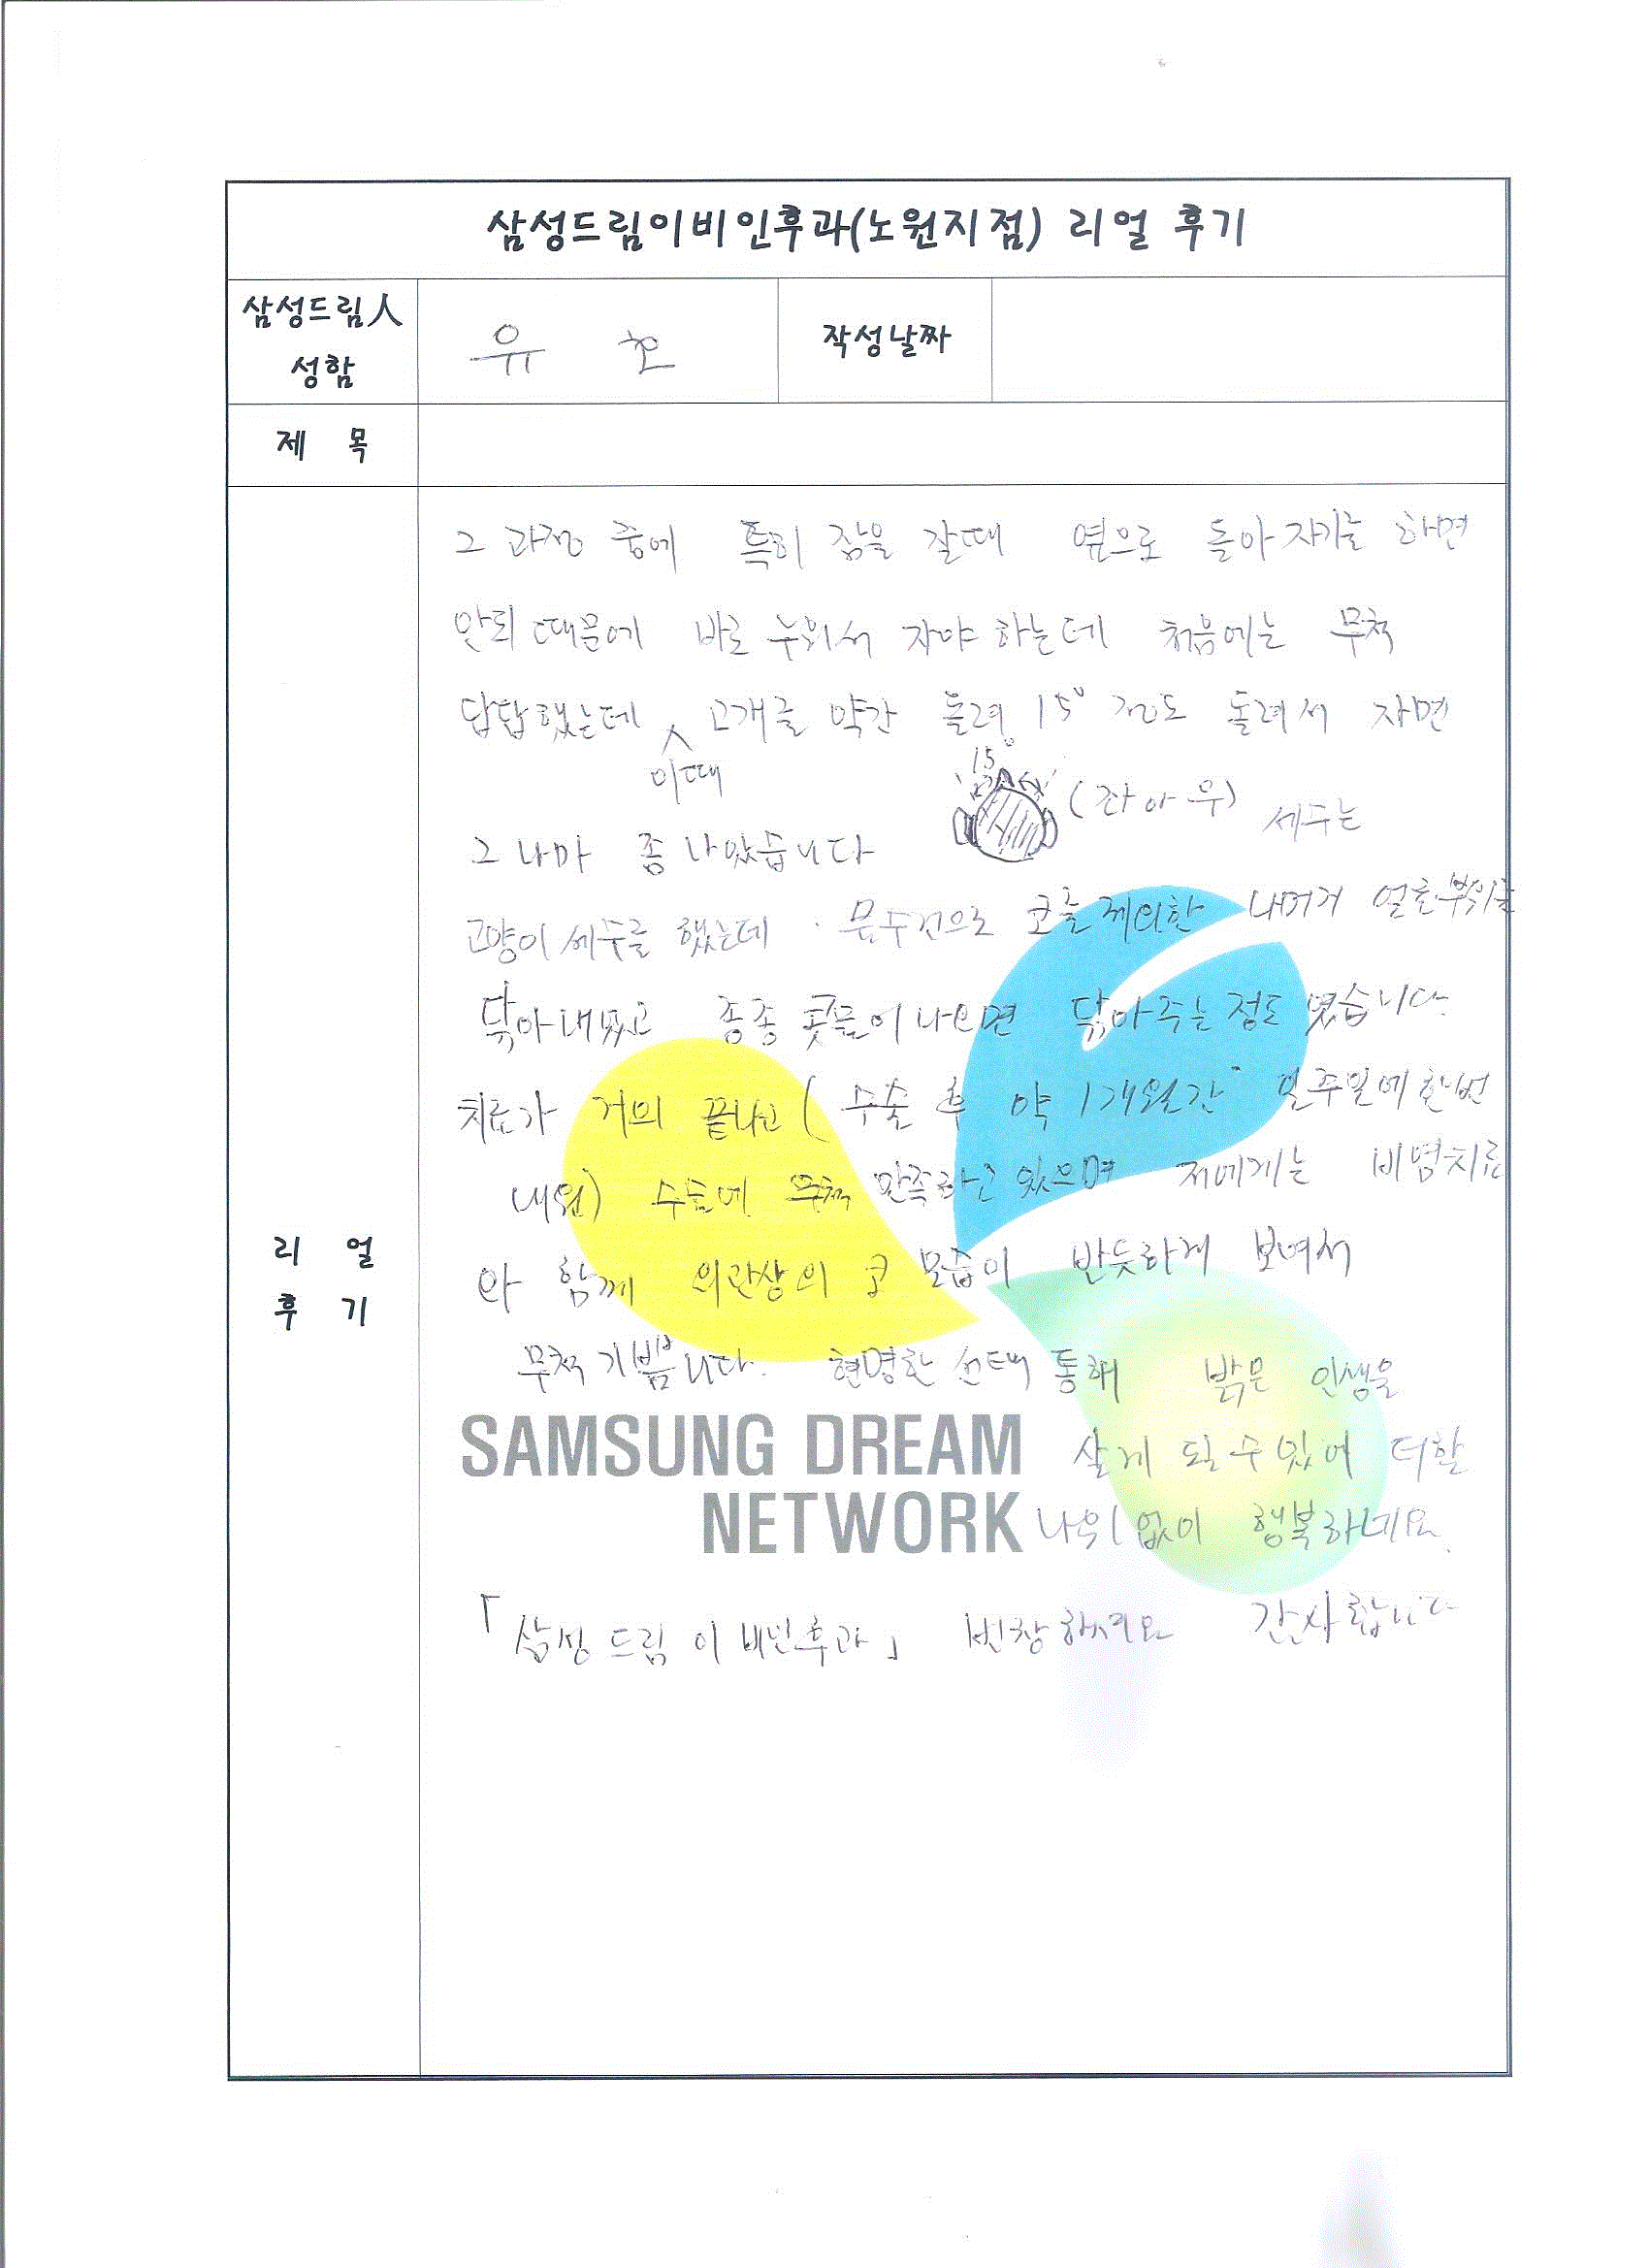 삼성드림이비인후과(노원지점) 리얼 후기
삼성드림人
성함
유 호
작성날짜
제 목
리 얼
후 기
그 과정 중에 특히 잠을 잘때 옆으로 돌아 자기를 하면
안되 때문에 바로 누워서 자야 하는데 처음에는 무척
답답했는데 이때 고개를 약간 돌려 15° 정도 돌려서 자면
15°
그나마 좀 나았습니다 (좌아우) 세수는
고양이 세수를 했는데. 물수건으로 코를 제외한 나머지 얼굴부위를
닦아내었고 종종 콧물이 나오면 닦아주는 정도 였습니다.
치료가 거의 끝나고 (수술 후 약 1개월간 일주일에 한번
내원) 수술에 무척 만족하고 있으며 저에게는 비염치료
와 함께 외관상의 코 모습이 반듯하게 보여서
무척 기쁩니다. 현명한 선택 통해 밝은 인생을
살게 될 수 있어 더할
나위 없이 행복하네요.
「삼성드림이비인후과」 번창하세요 감사합니다
SAMSUNG DREAM
NETWORK